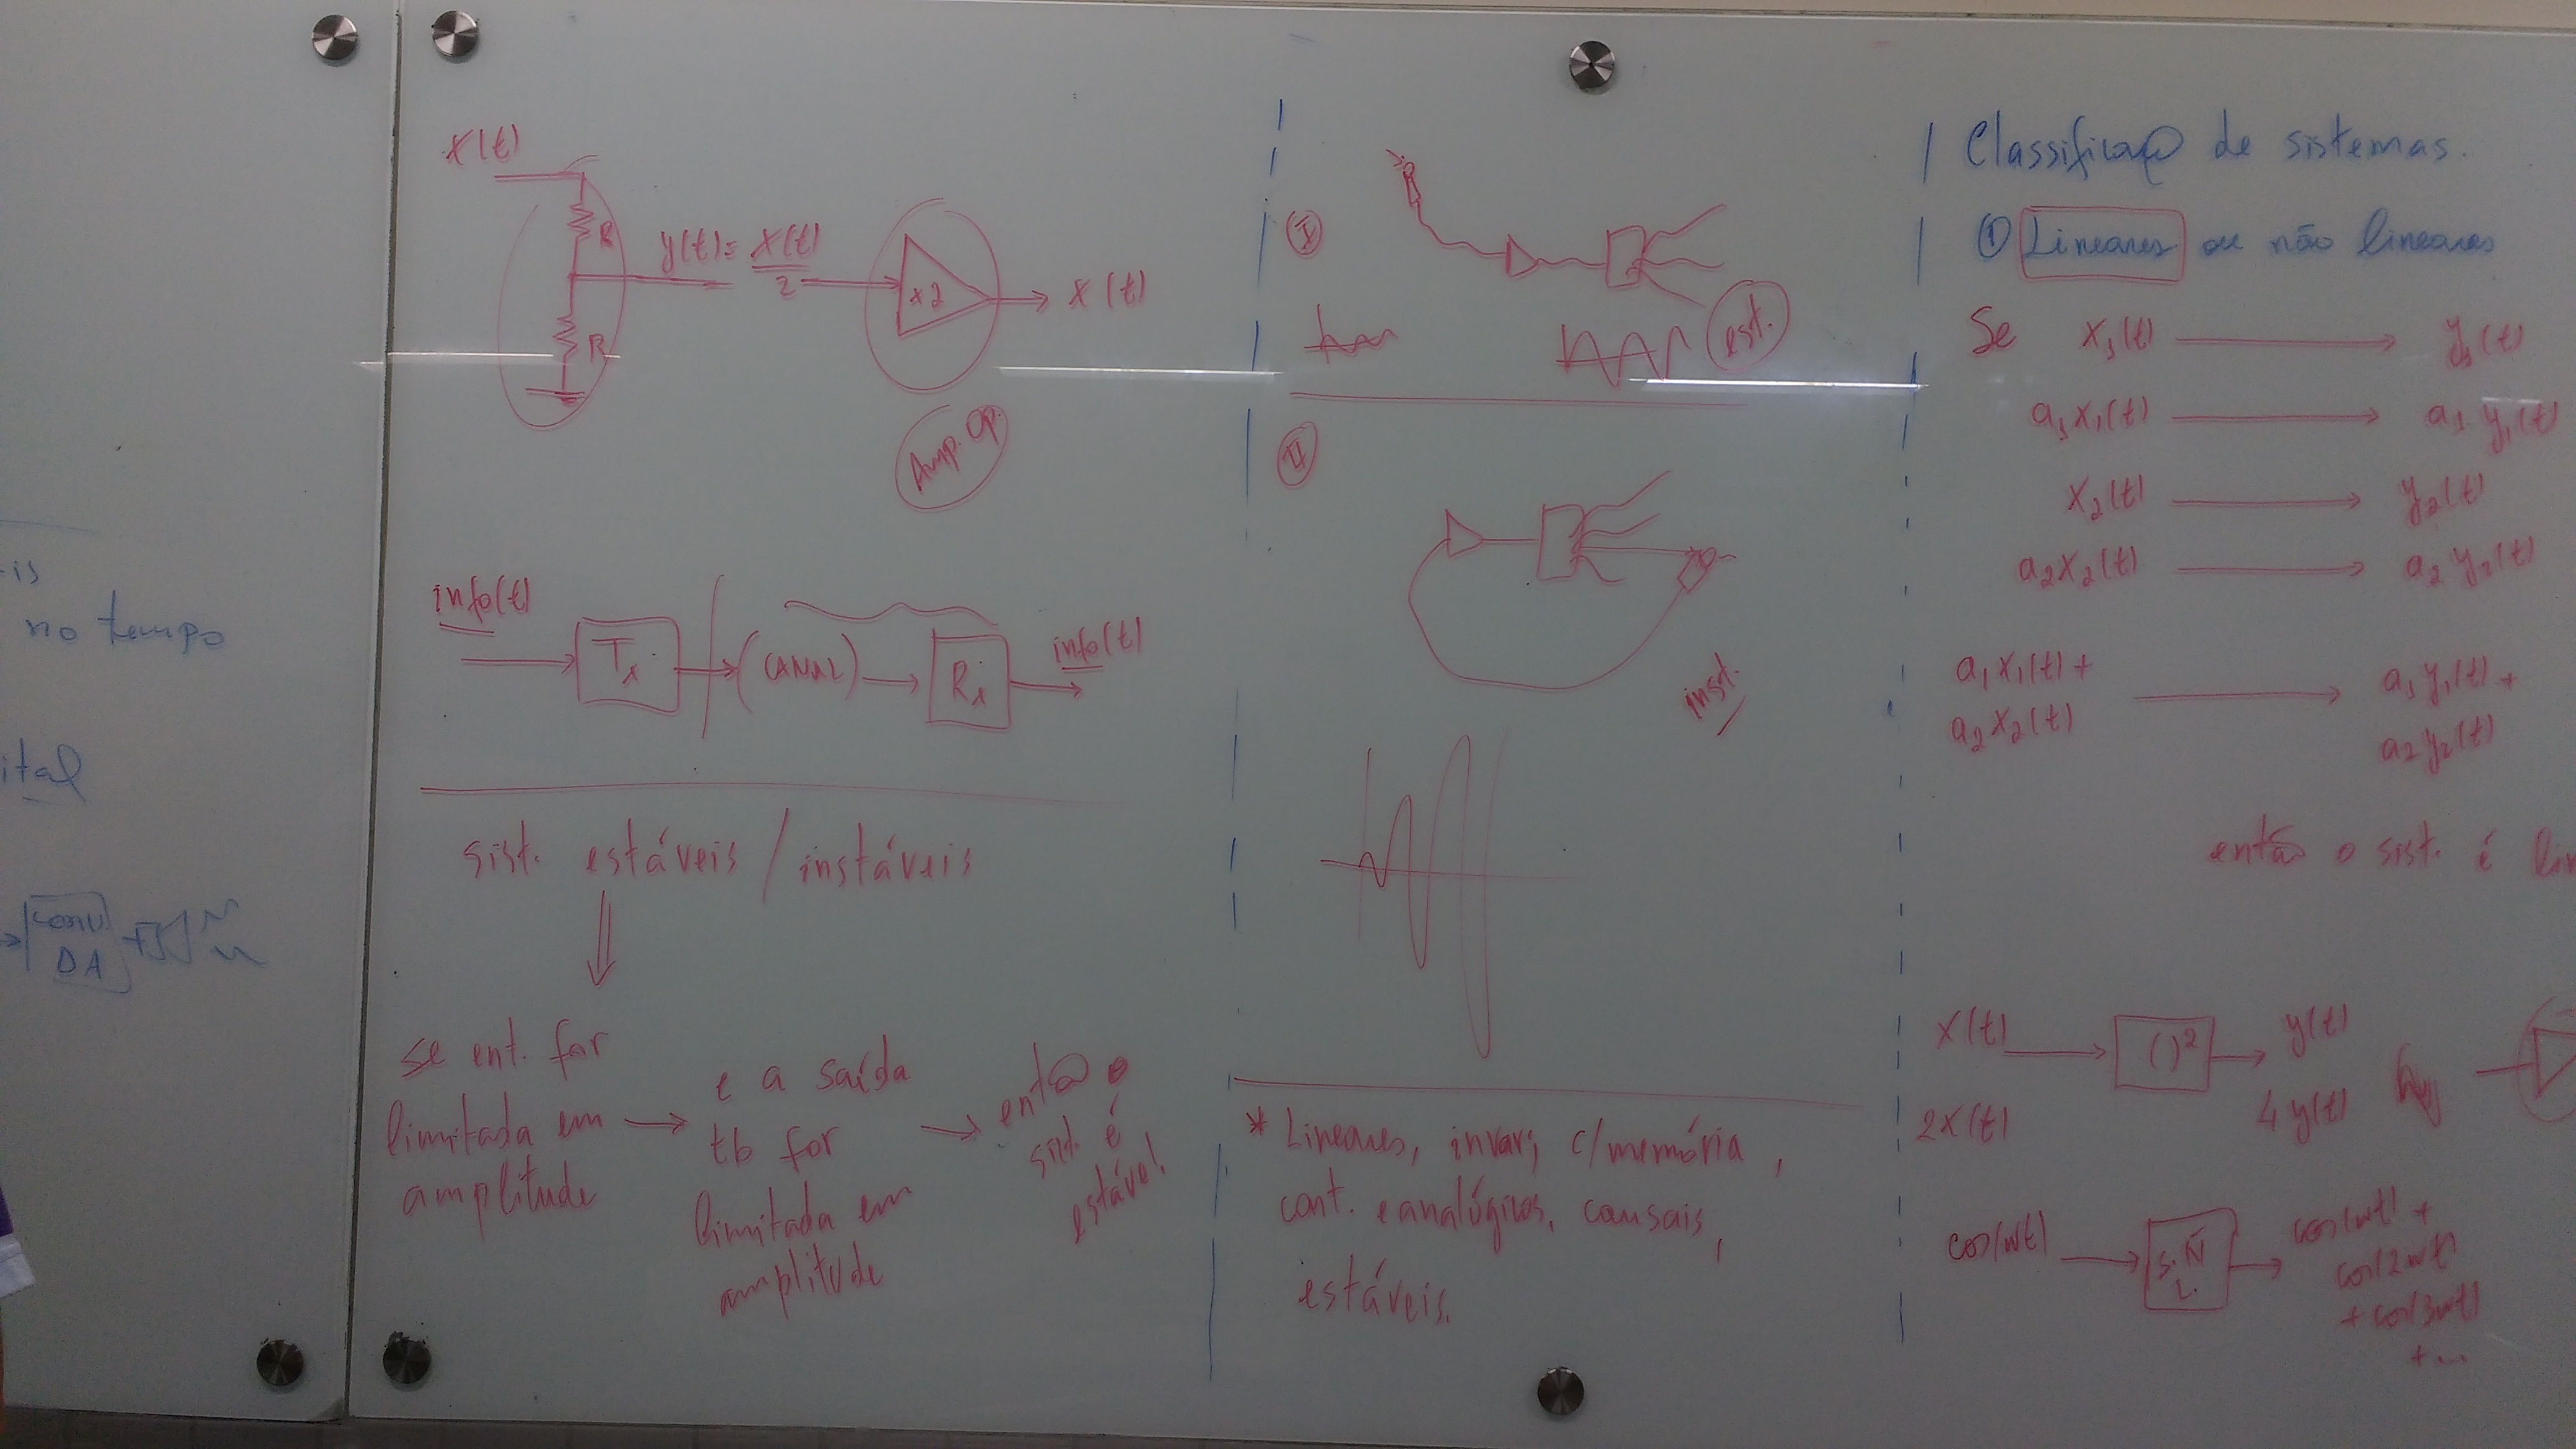 is
no tempo
ital
conv
DA
x(t)
R
y(t) = x(t)
2
x2
x(t)
R
Amp. Op.
info(t)
Tx
(CANAL)
Rx
info(t)
sist. estáveis / instáveis
se ent. for
limitada em
amplitude
e a saída
tb for
limitada em
amplitude
então o
sist. é
estável.
I
est.
II
inst.
* Lineares, invar, c/memória,
cont. e analógicos, causais,
estáveis.
Classificação de sistemas.
① Lineares ou não lineares
Se x₁(t) y₁(t)
a₁x₁(t) a₁ y₁(t)
x₂(t) y₂(t)
a₂x₂(t) a₂ y₂(t)
a₁x₁(t) + a₁y₁(t) +
a₂x₂(t) a₂y₂(t)
então o sist. é lin
x(t) ( )² y(t)
2x(t) 4y(t)
cos(wt) S.Ñ L. cos(wt) +
cos(2wt)
+ cos(3wt)
+ ...